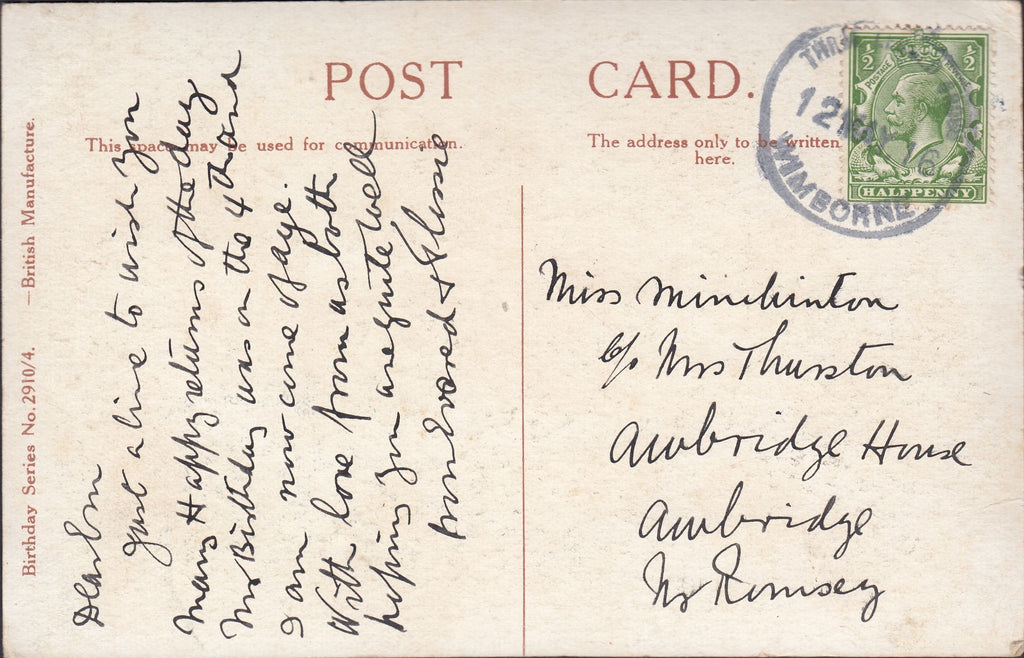 POST CARD.
This space may be used for communication.
The address only to be written
here.
Birthday Series No. 2910/4. — British Manufacture.
½ ½
POSTAGE
HALFPENNY
12 NO 16
WIMBORNE
Dear Em
Just a line to wish you
many Happy returns of the day
My Birthday was on the 4th and
I am now come of age.
With love from us both
hoping you are quite well
from Evered & Flossie
Miss Minchinton
c/o Mrs Thurston
Awbridge House
Awbridge
Nr Romsey